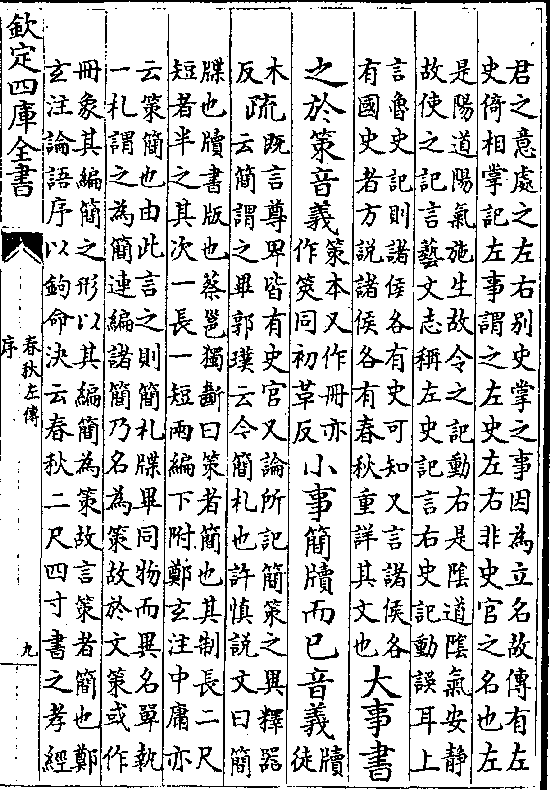 君之意處之左右別史掌之事因為立名故傳有左
史倚相掌記左事謂之左史左右非史官之名也左
是陽道陽氣施生故令之記動右是陰道陰氣安静
故使之記言藝文志稱左史記言右史記動誤耳上
言魯史記則諸侯各有史可知又言諸侯各
有國史者方説諸侯各有春秋重詳其文也
大事書
之於策音義
策本又作冊亦
作筴同初革反
小事簡牘而已音義
牘
徒
木
反
疏
既言尊卑皆有史官又論所記簡策之異釋器
云簡謂之畢郭璞云今簡札也許慎説文曰簡
牒也牘書版也蔡邕獨斷曰策者簡也其制長二尺
短者半之其次一長一短兩編下附鄭玄注中庸亦
云策簡也由此言之則簡札牒畢同物而異名單執
一札謂之為簡連編諸簡乃名為策故於文策或作
冊象其編簡之形以其編簡為策故言策者簡也鄭
玄注論語序以鉤命決云春秋二尺四寸書之孝經
欽定四庫全書
春秋左傳
序
九